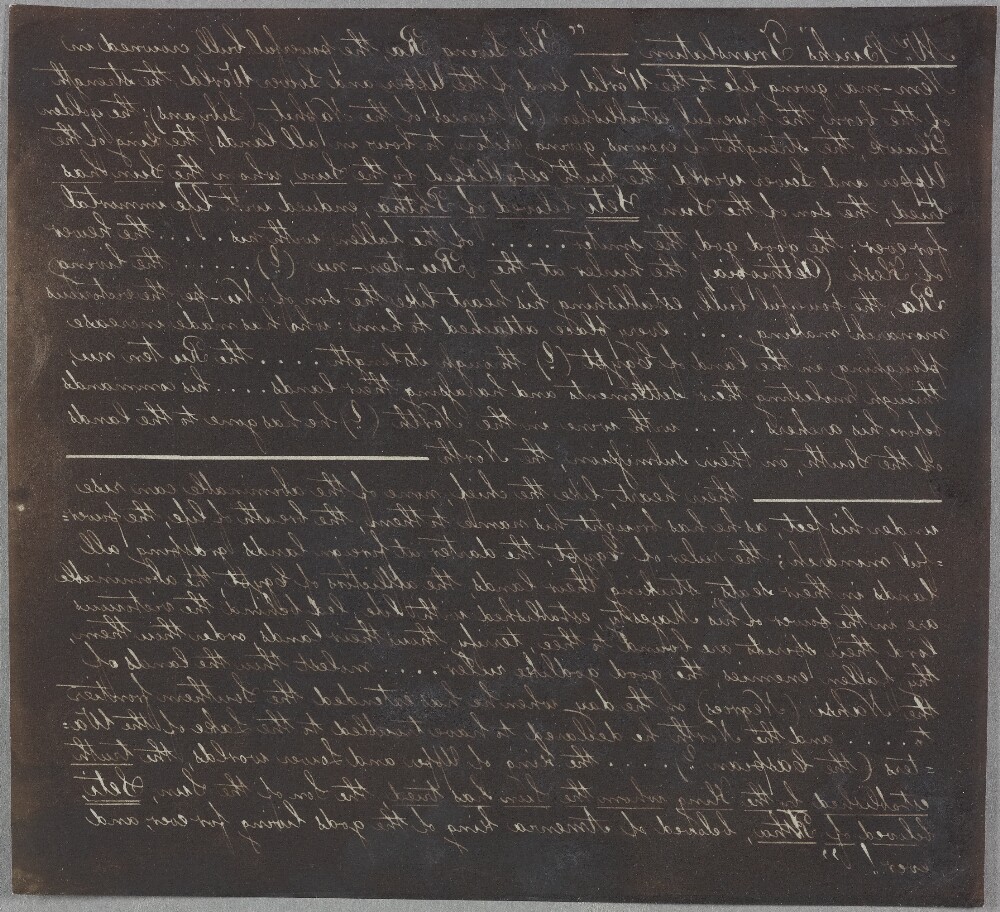 Mr. Birch's Translation — "The living Ra, the powerful bull, crowned in
Kem-ma giving life to the World, lord of the Upper and Lower World, the strength
of the born the powerful establisher (?) Reverse of the Na but (Libyans) the golden
Hawk, the strength of crowns giving victors to bow in all lands, the king of the
Upper and Lower world, the truth established by the Sun who is the Sun has
tried, the son of the Sun, Seti beloved of Pthha, endued with life immortal
for ever: the good god, the smiter . . . . . . of the fallen with his . . . . . . the hewer
of Kesh (Aethiopia, the hurler at the Ru-ten-nu (?) . . . . . the living
Ra, the powerful bull, establishing his heart like the son of Nu-pe, the victorious
monarch making . . . . . every place attached to him: who has made increase
ploughing in the land of Egypt (?) through its height . . . . . the Ru ten nu,
through molesting their settlements and harassing their lands . . . . his commands
before his archers . . . . . with wine in the North (?) he has gone to the lands
of the South, on their submission, the North
their heart like the chief, none of the abominable can rise
under his feet, as he has brought his mandate to them, the breath of life, the power-
-ful monarch; the ruler of Egypt, the daster at foreign lands, grasping all
lands in their seats, striking their lands, the afflictors of Egypt, the abominable
are in the power of his Majesty, established in the Vile led behind the victorious
lord their spirits are bound to thee, terrify thou their lands, order thou them,
the fallen enemies, the good godlike ruler . . . . . molest thou the lands of
the Nahsi (Negroes) of the day when he has extended the Southern frontier
to . . . . . and the North he declared to have trusted to the Lake of the Wa-
-ters (the Caspian?) . . . . . the king of Upper and Lower worlds, the truth
established by the King whom the Sun has tried the Son of the Sun, Seti
beloved of Pthha, beloved of Amenra King of the gods living for ever, and
ever!"